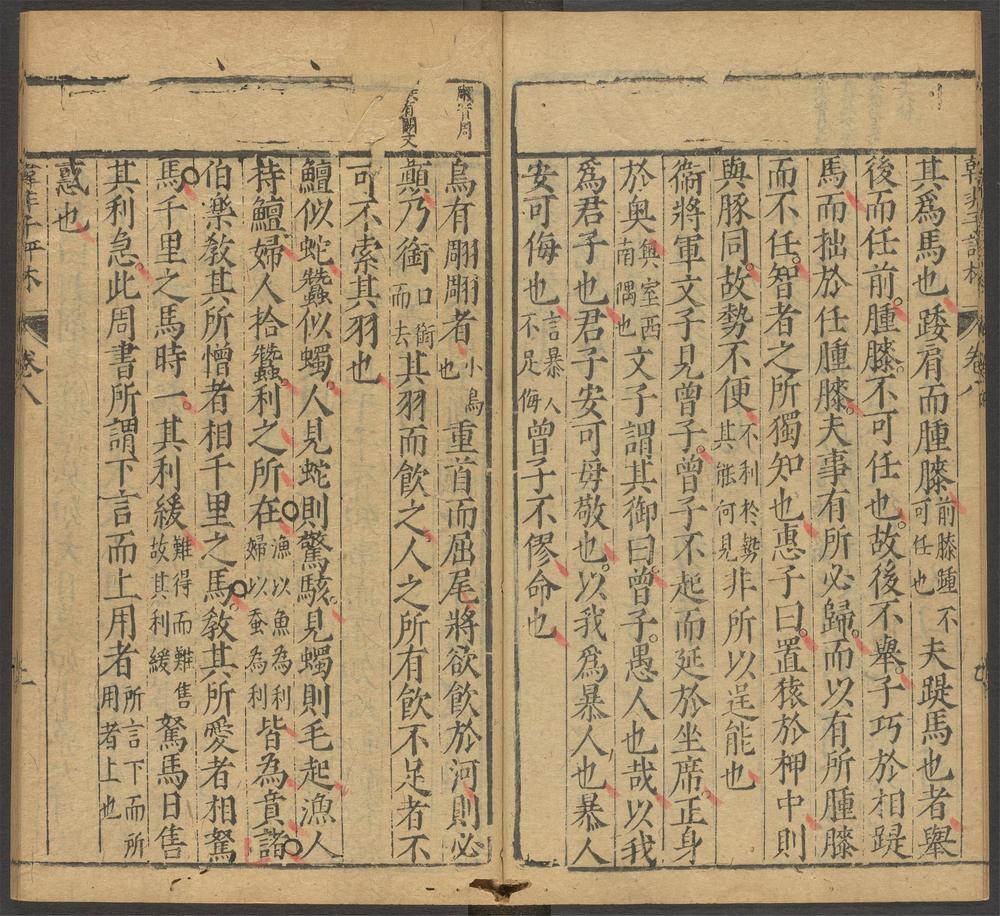 其爲馬也踒肩而腫膝前膝踵不可任也夫踶馬也者舉
後而任前腫膝不可任也故後不舉子巧於相踶
馬而拙於任腫膝夫事有所必歸而以有所腫膝
而不任智者之所獨知也惠子曰置猿於柙中則
與豚同故勢不便不利於勢其能何見非所以逞能也
衞將軍文子見曾子曾子不起而延於坐席正身
於奥奥室西南隅也文子謂其御曰曾子愚人也哉以我
爲君子也君子安可毋敬也以我爲暴人也暴人
安可侮也言暴人不足侮曾子不僇命也
鳥有翢翢者小鳥也重首而屈尾將欲飲於河則必
顚乃銜口銜而去其羽而飲之人之所有飲不足者不
可不索其羽也
鱣似蛇蠶似蠋人見蛇則驚駭見蠋則毛起漁人
持鱣婦人拾蠶利之所在漁以魚為利婦以蚕為利皆為賁諸
伯樂敎其所憎者相千里之馬敎其所愛者相駑
馬千里之馬時一其利緩難得而難售故其利緩駑馬日售
其利急此周書所謂下言而上用者所言下而所用者上也
惑也
翢音周
有闕文
卷八